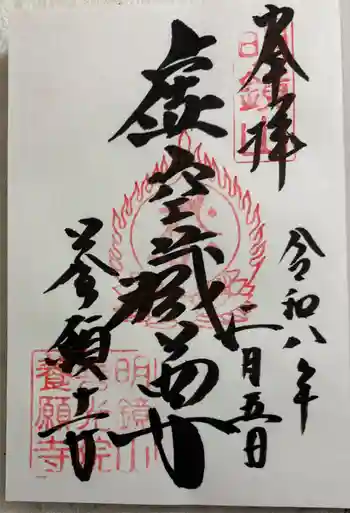 奉拝
明鏡山
令和八年
一月五日
虚空蔵尊
養願寺
明鏡山
光院
養願寺